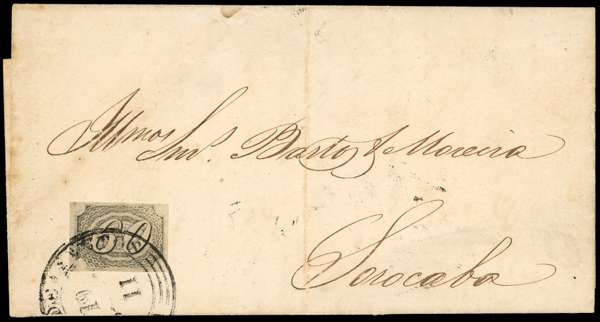 Illmos Snrs. Barto & Moreira
Sorocaba
60
11